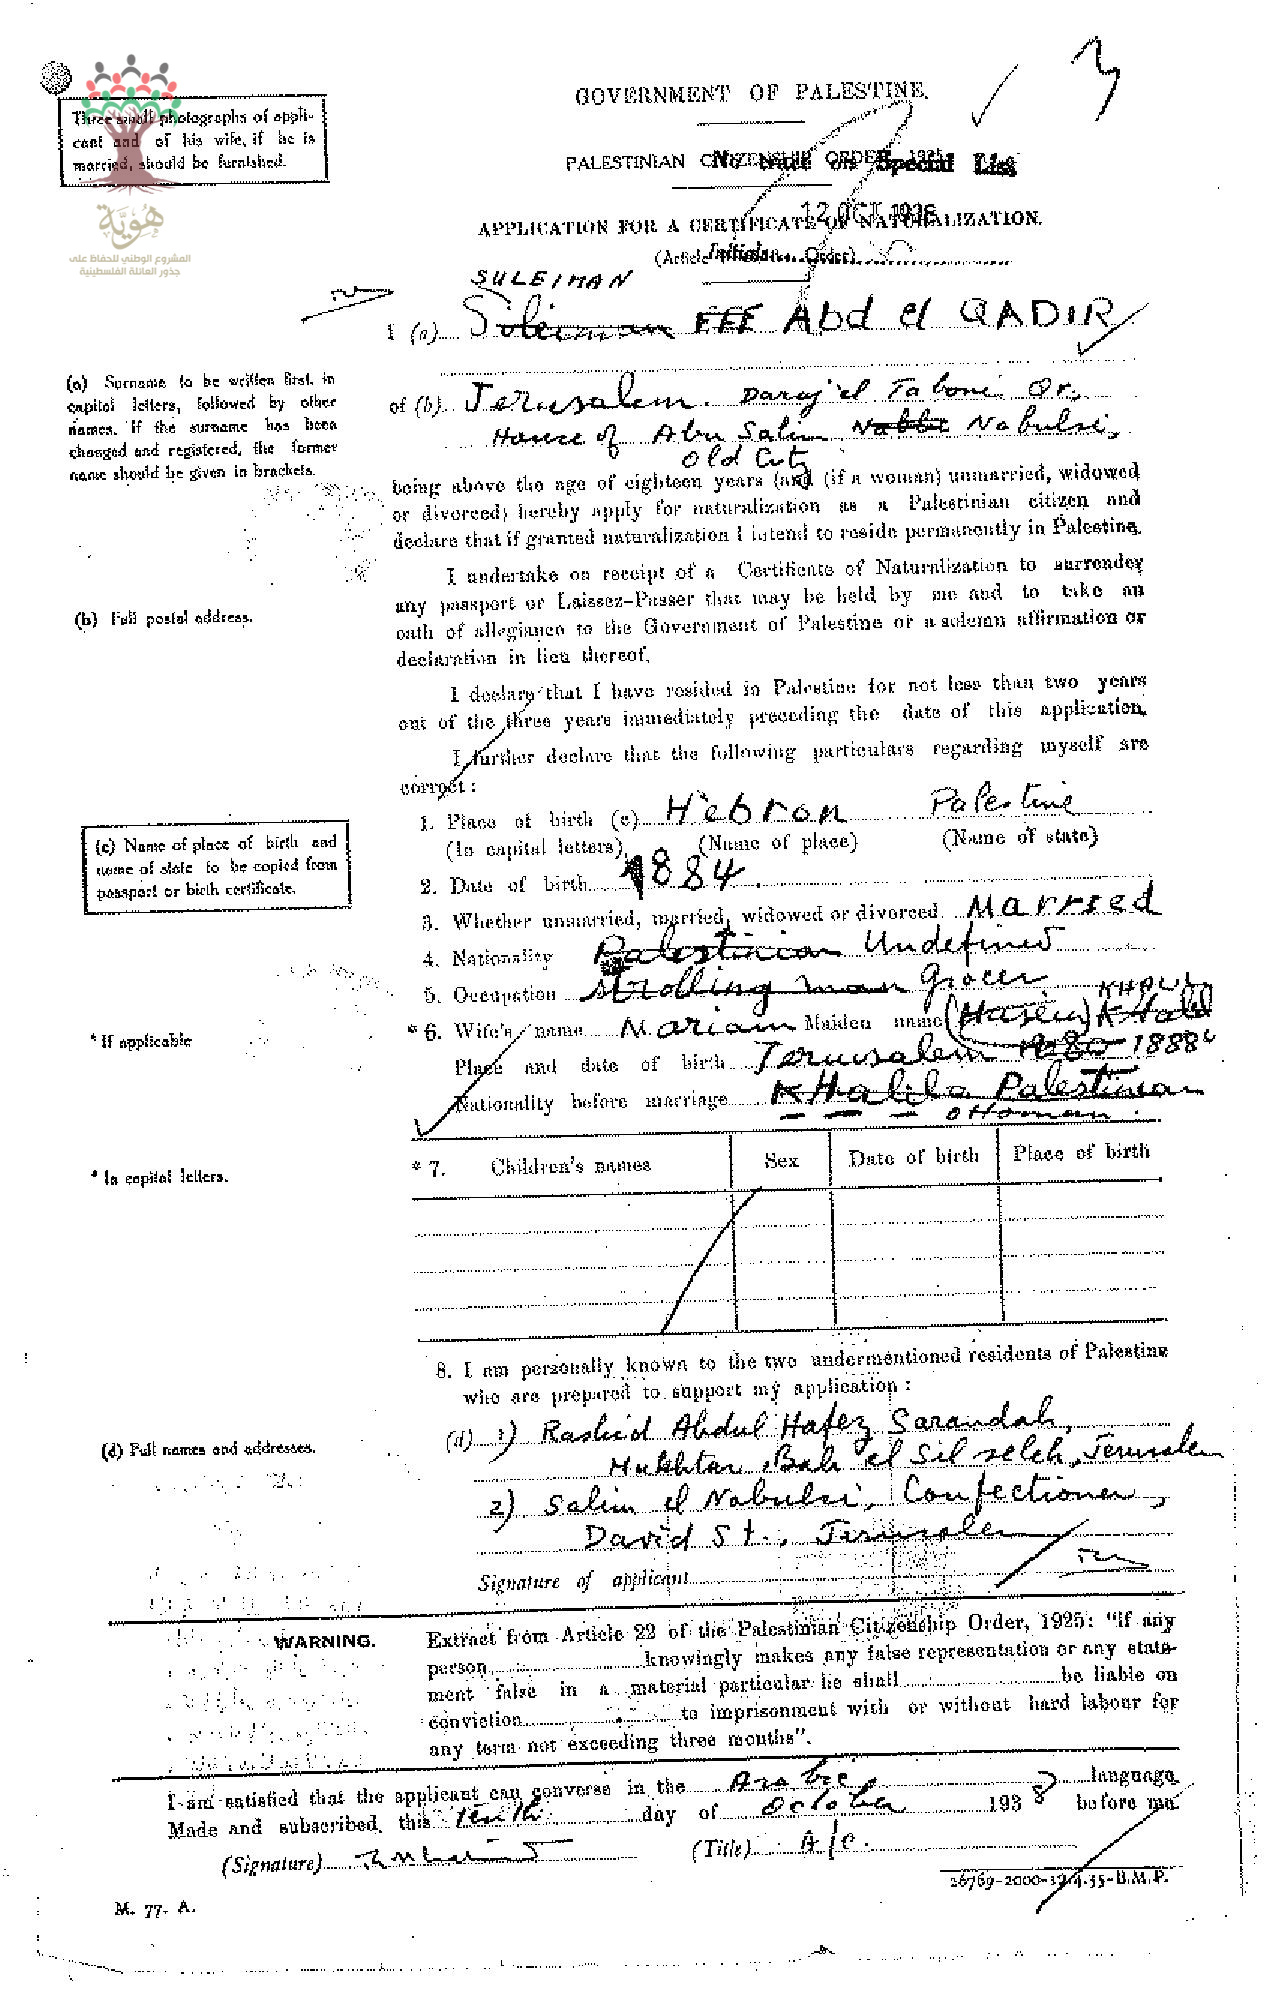 Three small photographs of appli-
cant and of his wife, if he is
married, should be furnished.
هُوِيَّة
المشروع الوطني للحفاظ على
جذور العائلة الفلسطينية
GOVERNMENT OF PALESTINE.
PALESTINIAN CITIZENSHIP ORDER, 1925
No trace on Special List
12 OCT 1938
APPLICATION FOR A CERTIFICATE OF NATURALIZATION.
(Article Order)
Initials
SULEIMAN
I (a) Suleiman Abd el QADIR
(a) Surname to be written first, in
capital letters, followed by other
names. If the surname has been
changed and registered, the former
name should be given in brackets.
of (b) Jerusalem. Daraj el Taboni Qr,
House of Abu Salim Nabulsi,
Old City
being above the age of eighteen years (and (if a woman) unmarried, widowed
or divorced) hereby apply for naturalization as a Palestinian citizen and
declare that if granted naturalization I intend to reside permanently in Palestine.
I undertake on receipt of a Certificate of Naturalization to surrender
any passport or Laissez-Passer that may be held by me and to take an
oath of allegiance to the Government of Palestine or a solemn affirmation or
declaration in lieu thereof.
(b) Full postal address.
I declare that I have resided in Palestine for not less than two years
out of the three years immediately preceding the date of this application.
I further declare that the following particulars regarding myself are
correct:
1. Place of birth (c) Hebron Palestine
(In capital letters) (Name of place) (Name of state)
(c) Name of place of birth and
name of state to be copied from
passport or birth certificate.
2. Date of birth 1884.
3. Whether unmarried, married, widowed or divorced Married
4. Nationality Palestinian Undefined
5. Occupation strolling man grocer
* 6. Wife's name Mariam Maiden name (Hasein) Khalil
KHALIL
* If applicable
Place and date of birth Jerusalem 1880 1888
Nationality before marriage Khalila Palestinian
Ottoman.
* In capital letters.
* 7. Children's names Sex Date of birth Place of birth
8. I am personally known to the two undermentioned residents of Palestine
who are prepared to support my application:
(d) Full names and addresses.
(d) 1) Rashid Abdul Hafez Sarandah,
Mukhtar, Bab el Silseleh, Jerusalem
2) Salim el Nabulsi, Confectioner,
David St., Jerusalem
Signature of applicant
WARNING.
Extract from Article 22 of the Palestinian Citizenship Order, 1925: "If any
person knowingly makes any false representation or any state-
ment false in a material particular he shall be liable on
conviction to imprisonment with or without hard labour for
any term not exceeding three months".
I am satisfied that the applicant can converse in the Arabic language.
Made and subscribed, this tenth day of October 1938 before me.
(Signature) (Title) A/c.
26769-2000-12.4.35-B.M.P.
M. 77. A.